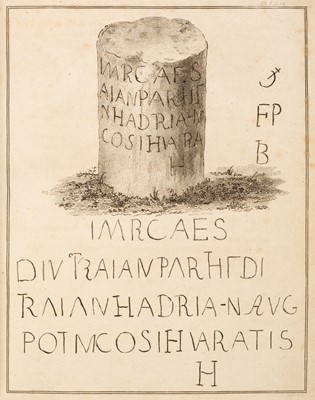 IMRCAES
AIANPARTHF
NHADRIA-N
COSIHVARA
H
FP
B
IMRCAES
DIVTRAIANPARTHFDI
TRAIANHADRIA-NAVG
POTMCOSIHVARATIS
H